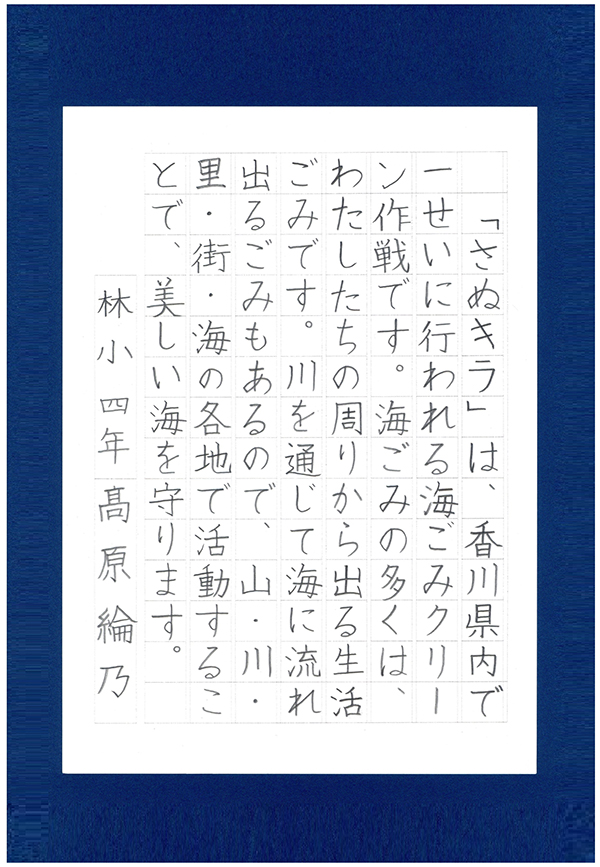 「さぬキラ」は、香川県内で
一せいに行われる海ごみクリー
ン作戦です。海ごみの多くは、
わたしたちの周りから出る生活
ごみです。川を通じて海に流れ
出るごみもあるので、山・川・
里・街・海の各地で活動するこ
とで、美しい海を守ります。
林小 四年 髙原綸乃